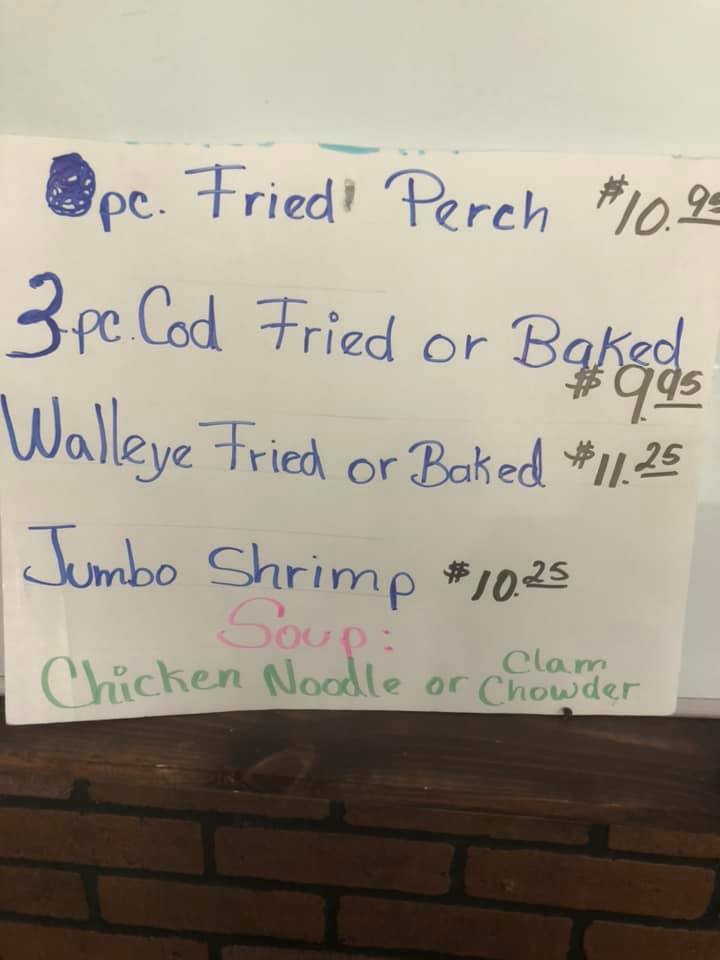 pc. Fried Perch $10.95
3 pc. Cod Fried or Baked
$9.95
Walleye Fried or Baked $11.25
Jumbo Shrimp $10.25
Soup:
Chicken Noodle or Clam Chowder